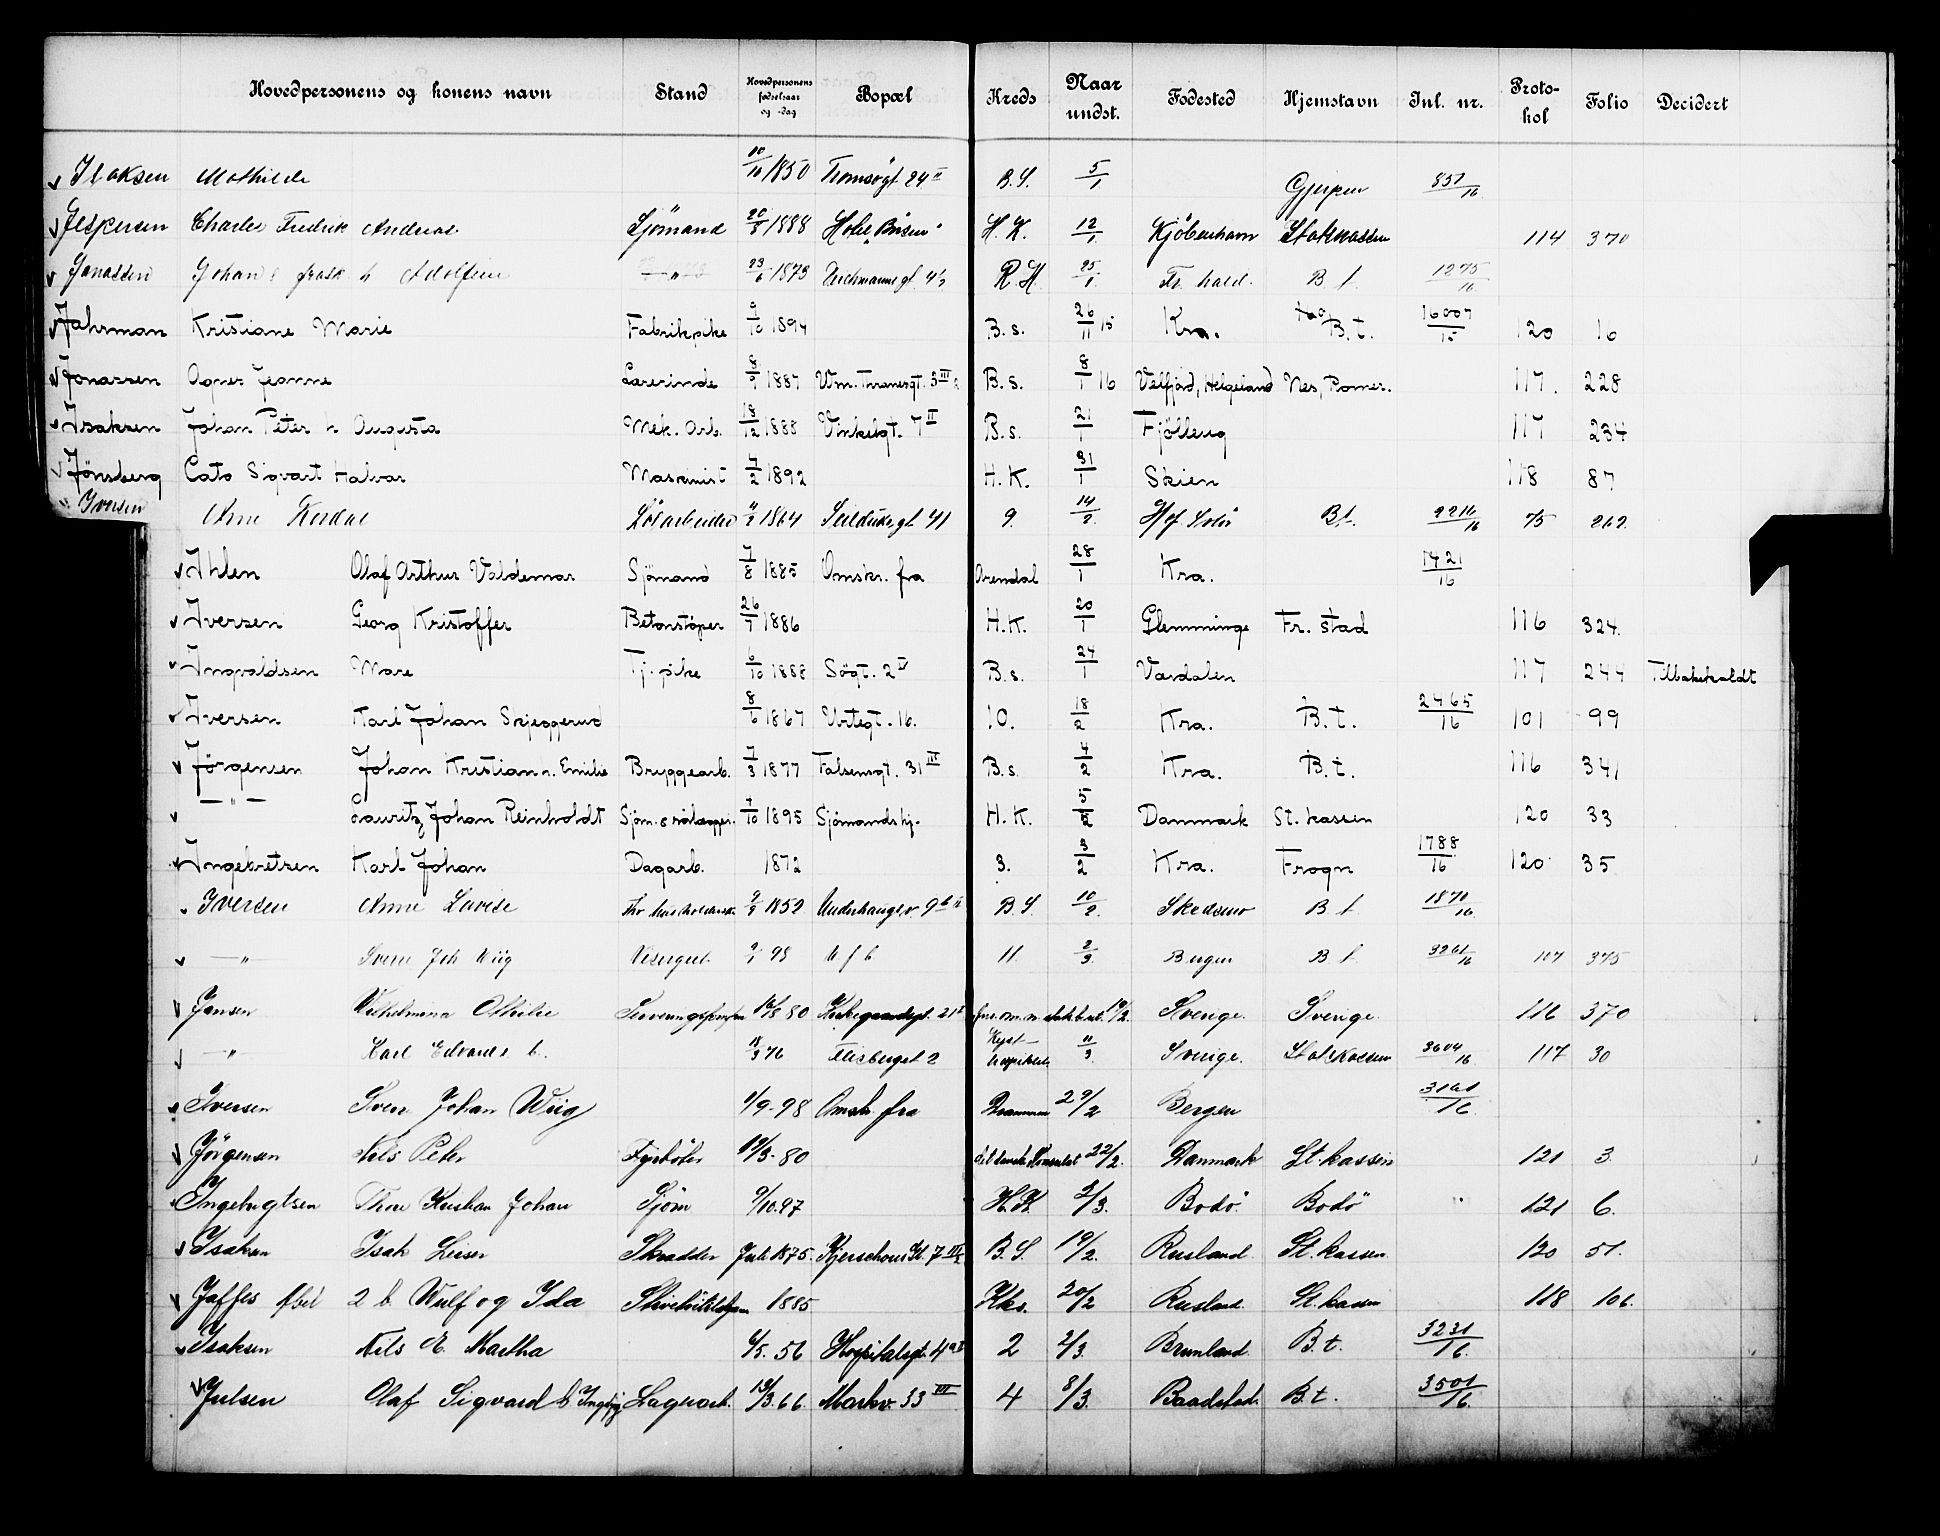 Hovedpersonens og konens navn Stand Hovedpersonens fødselsaar og -dag Bopæl Kreds Naar undst. Fødested Hjemstavn Jnl. nr. Proto-kol Folio Decidert
Isaksen Mathilde 10/11 1850 Tromsøgt 24 II B.S. 5/1 Gjerpen 851/16
Jespersen Charles Fredrik Andreas Sjömand 20/8 1888 Hotel "Börsen" H.K. 12/1 Kjöbenhavn Statskassen 114 370
Jonassen Johan Adolfine — " — 23/6 1873 Deichmanns gt. R H 25/1 Fr. hald. B t 1275/16
Jahrman Kristiane Marie Fabrikpike 9/10 1894 B.s. 26/11 15 Kra. B.t. 16007/15 120 16
Jonassen Agnes Jeanne Lærerinde 8/9 1887 Wm. Thranesgt. 3 III B.s. 8/1 16 Velfjord, Helgeland Nes, Romer. 117. 228
Isaksen Johan Peter h Augusta Mek. Arb. 18/12 1888 Vinkelgt. 7 II B.s. 21/1 Tjölling 117 234
Jönsberg Cato Sigvart Halvar Maskinist 7/2 1892 H.K. 31/1 Skien 118 87
Iversen Arne Kordal Lösarbeider 4/2 1864 Seilduksgt 41 9. 14/2. Hof Solör Bt. 2216/16 75 262.
Ihlen Olaf Arthur Valdemar Sjömand 7/8 1885 Omskr. fra Arendal 28/1 Kra. 1421/16
Iversen Georg Kristoffer Betonstöper 26/7 1886 H.K. 20/1 Glemminge Fr. stad 116 324.
Ingvaldsen Mare Tj. pike 6/10 1888 Søgt. 2 IV B.s. 24/1 Værdalen 117 244 Tilbakekaldt
Iversen Karl Johan Skjeggerud 8/6 1867 Urtegt. 16. 10. 18/2 Kra. B.t. 2465/16 101 99
Jörgensen Johan Kristian h. Emilie Bryggearb. 7/3 1877 Falsensgt. 31 IV B.s. 4/2 Kra. B.t. 116 341
— " — Lauritz Johan Reinholdt Sjöm. 7/10 1895 Sjömandshj. H.K. 5/2 Danmark St. kassen 120 33
Ingebretsen Karl Johan Dagarb. 1872 3. 3/2 Kra. Frogn 1788/16 120 35
Iversen Anne Lovise 9/9 1852 Underhaugsv. 9 b II B.S. 10/2. Skedsmo B t 1870/16
— " — Sverre Joh Wiig Visergut 98 U f b 11 2/3. Bergen B t. 3261/16 107 375
Jansen Wilhelmina Othilie 16/8 80 Kirkegaardsgt. 21 I 19/2. Sverige. Sverige. 116 370
— " — Karl Edvards b. 18/3 76 Flisberget 2 Kyst-hospitalet 11/3. Sverige. Statskassen 3604/16 117 30
Iversen Sverr Johan Wiig 1/9-98 Omsk. fra Drammen 29/2 Bergen 3161/16
Jörgensen Nils Peter Fyrböter 19/3-80 det danske Konsulat 22/2. Danmark St. kassen 121 3.
Ingebrigtsen Thor Kristian Johan Sjöm 9/10.97 H.K. 2/3. Bodö. Bodö " 121 6.
Isaksen Isak Leiser Skrædder Juli 1875. Kjerschous St 7 III B.S. 19/2. Rusland. St. kassen 120 51.
Jaffes Abel 2 b. Wulf og Ida 1885 Kks. 20/2 Rusland. St. kassen 118 106.
Isaksen Nils E. Martha 6/5. 56 Hospitalsgt. 4 2 2/3. Brunland. B.t. 3231/16.
Julsen Olaf Sigvard h Ingeborg Lagerarb. 13/3. 66. Markv. 33 III 4 8/3. Baadstad. B.t. 3501/16.